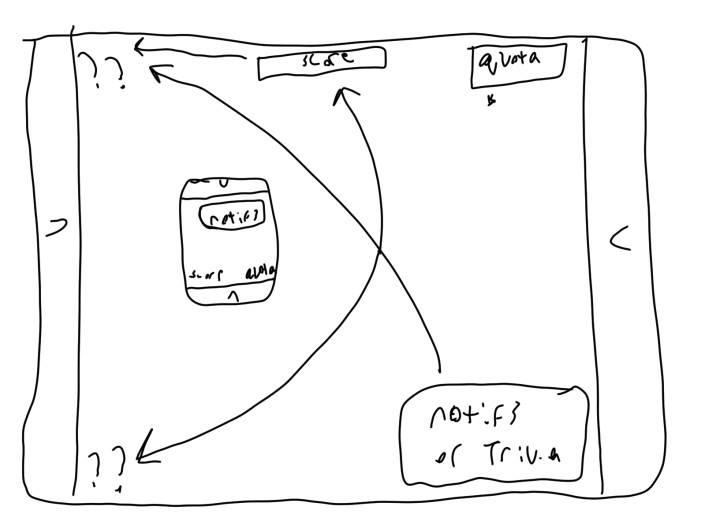 ??
score
quota
notifs
score quota
notifs
or Trivia
??